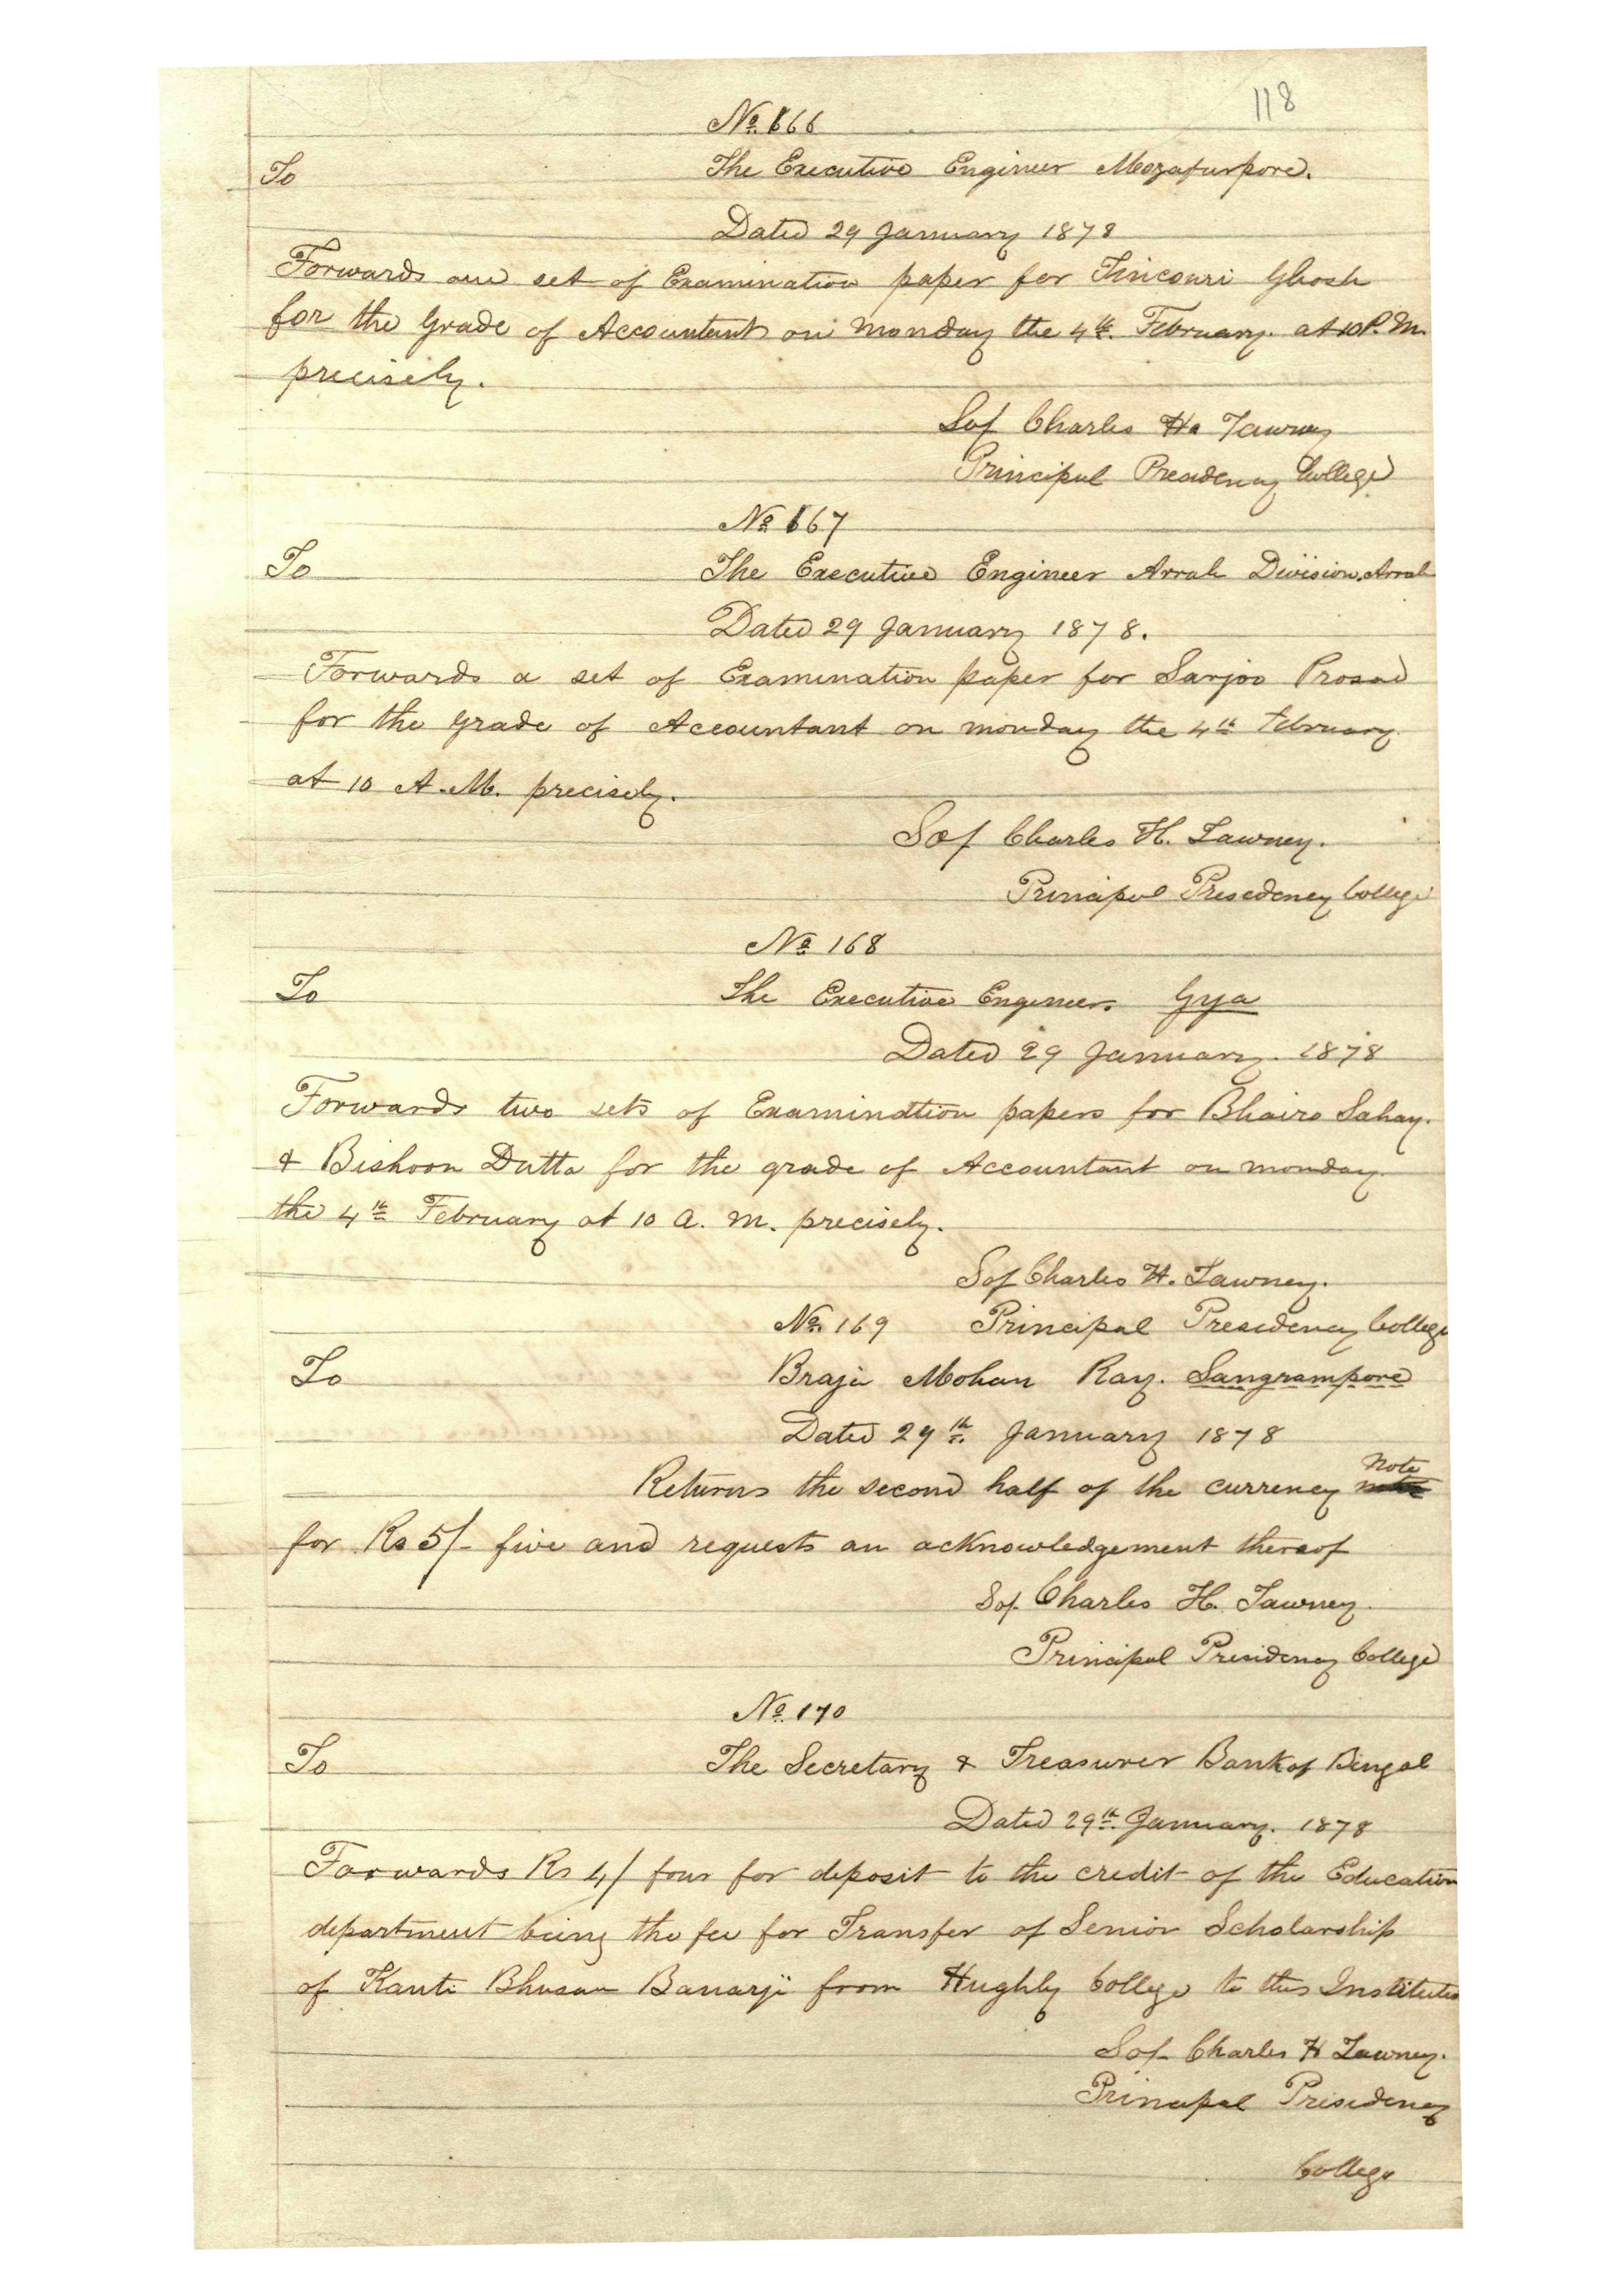 118
No. 166
To The Executive Engineer Mozafurpore.
Dated 29 January 1878
Forwards one set of Examination paper for Tincouri Ghosh
for the Grade of Accountant on Monday the 4th. February. at 10 P. M.
precisely.
Sd/ Charles H. Tawney
Principal Presidency College
No. 167
To The Executive Engineer Arrah Division, Arrah
Dated 29 January 1878.
Forwards a set of Examination paper for Sarjoo Prosad
for the grade of Accountant on monday the 4th February
at 10 A.M. precisely.
Sd/ Charles H. Tawney.
Principal Presedency College
No. 168
To The Executive Engineer. Gya
Dated 29 January. 1878
Forwards two sets of Examination papers for Bhairo Sahay.
& Bishoon Dutta for the grade of Accountant on monday.
the 4th February at 10 a. m. precisely.
Sd/ Charles H. Tawney.
No. 169 Principal Presidency College
To Braja Mohan Ray. Sangrampore
Dated 29th. January 1878
Returns the second half of the currency Note
for Rs 5/- five and requests an acknowledgement thereof
Sd/. Charles H. Tawney.
Principal Presidency College
No. 170
To The Secretary & Treasurer Bank of Bengal
Dated 29th. January. 1878
Forwards Rs 4/ four for deposit to the credit of the Education
department being the fee for Transfer of Senior Scholarship
of Kanti Bhusan Banarji from Hughly College to this Institution
Sd/- Charles H Tawney.
Principal Presidency
College